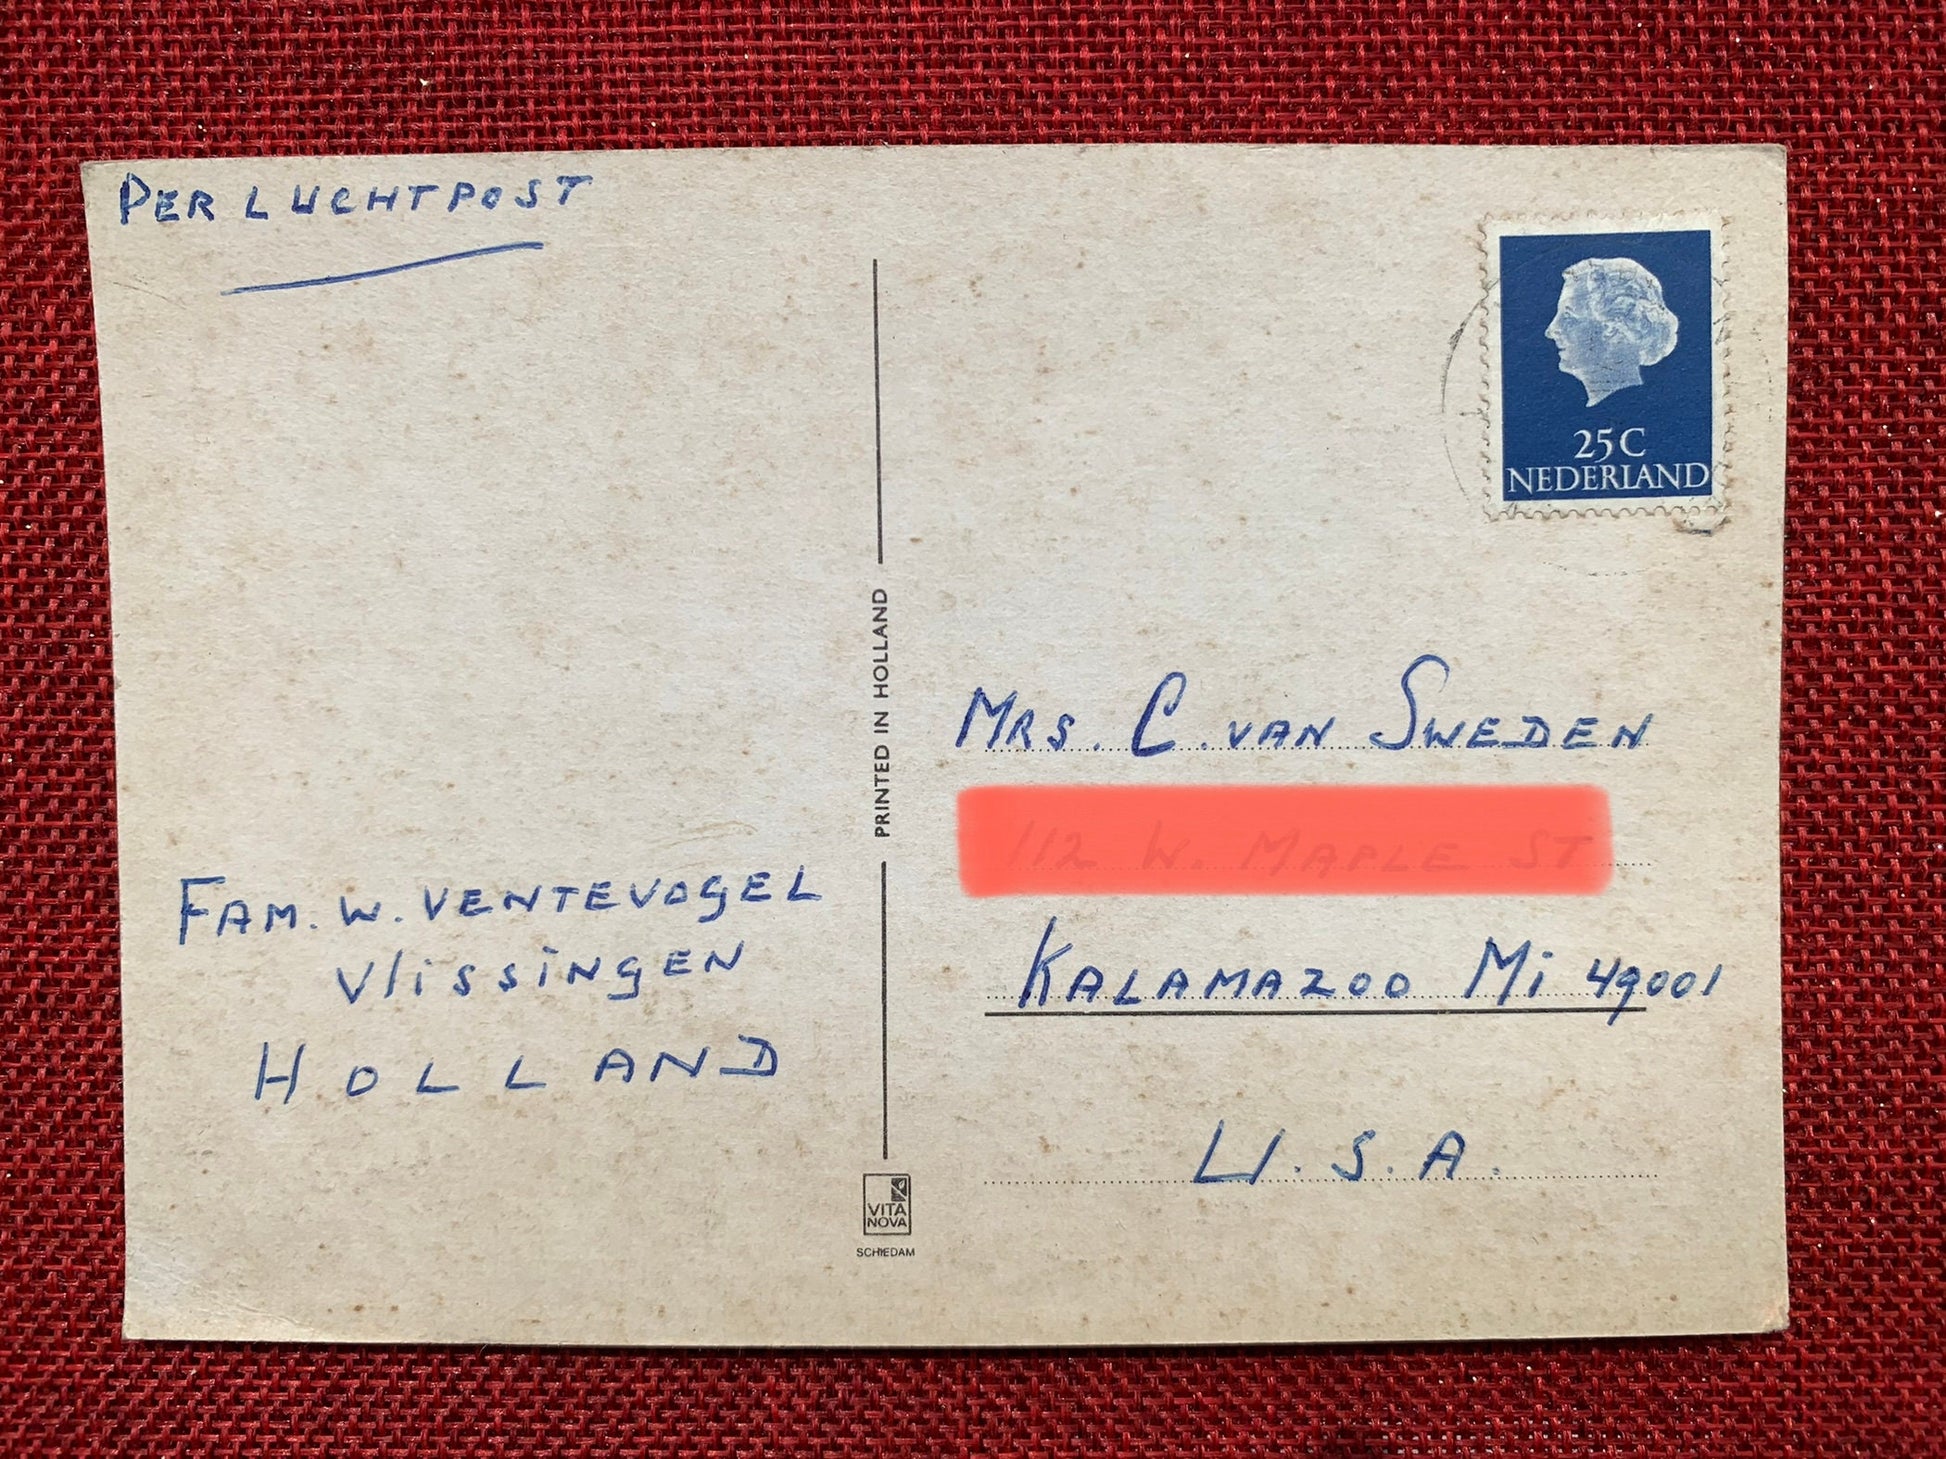 PER LUCHTPOST
25C
NEDERLAND
PRINTED IN HOLLAND
MRS. C. VAN SWEDEN
KALAMAZOO Mi 49001
U.S.A.
FAM. W. VENTEVOGEL
VlissiNgEN
HOLLAND
VITA
NOVA
SCHIEDAM